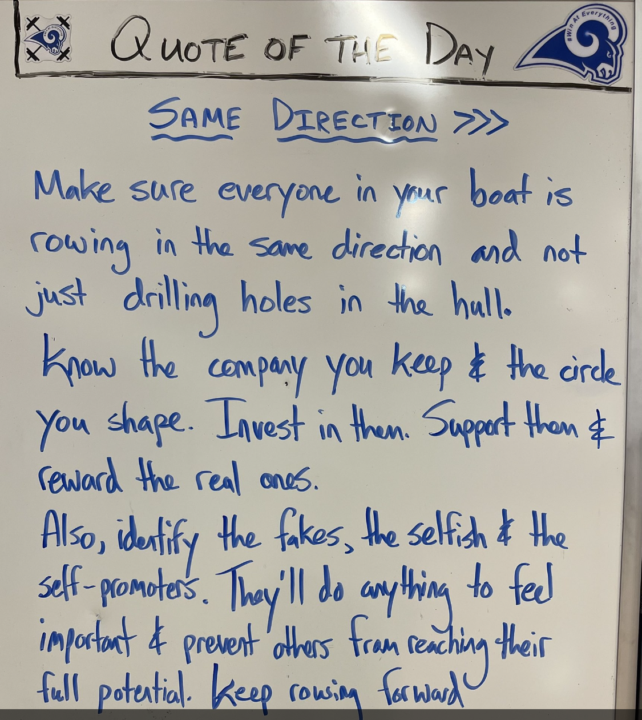 QUOTE OF THE DAY
SAME DIRECTION >>>
Make sure everyone in your boat is
rowing in the same direction and not
just drilling holes in the hull.
Know the company you keep & the circle
you shape. Invest in them. Support them &
reward the real ones.
Also, identify the fakes, the selfish & the
self-promoters. They'll do anything to feel
important & prevent others from reaching their
full potential. Keep rowing forward